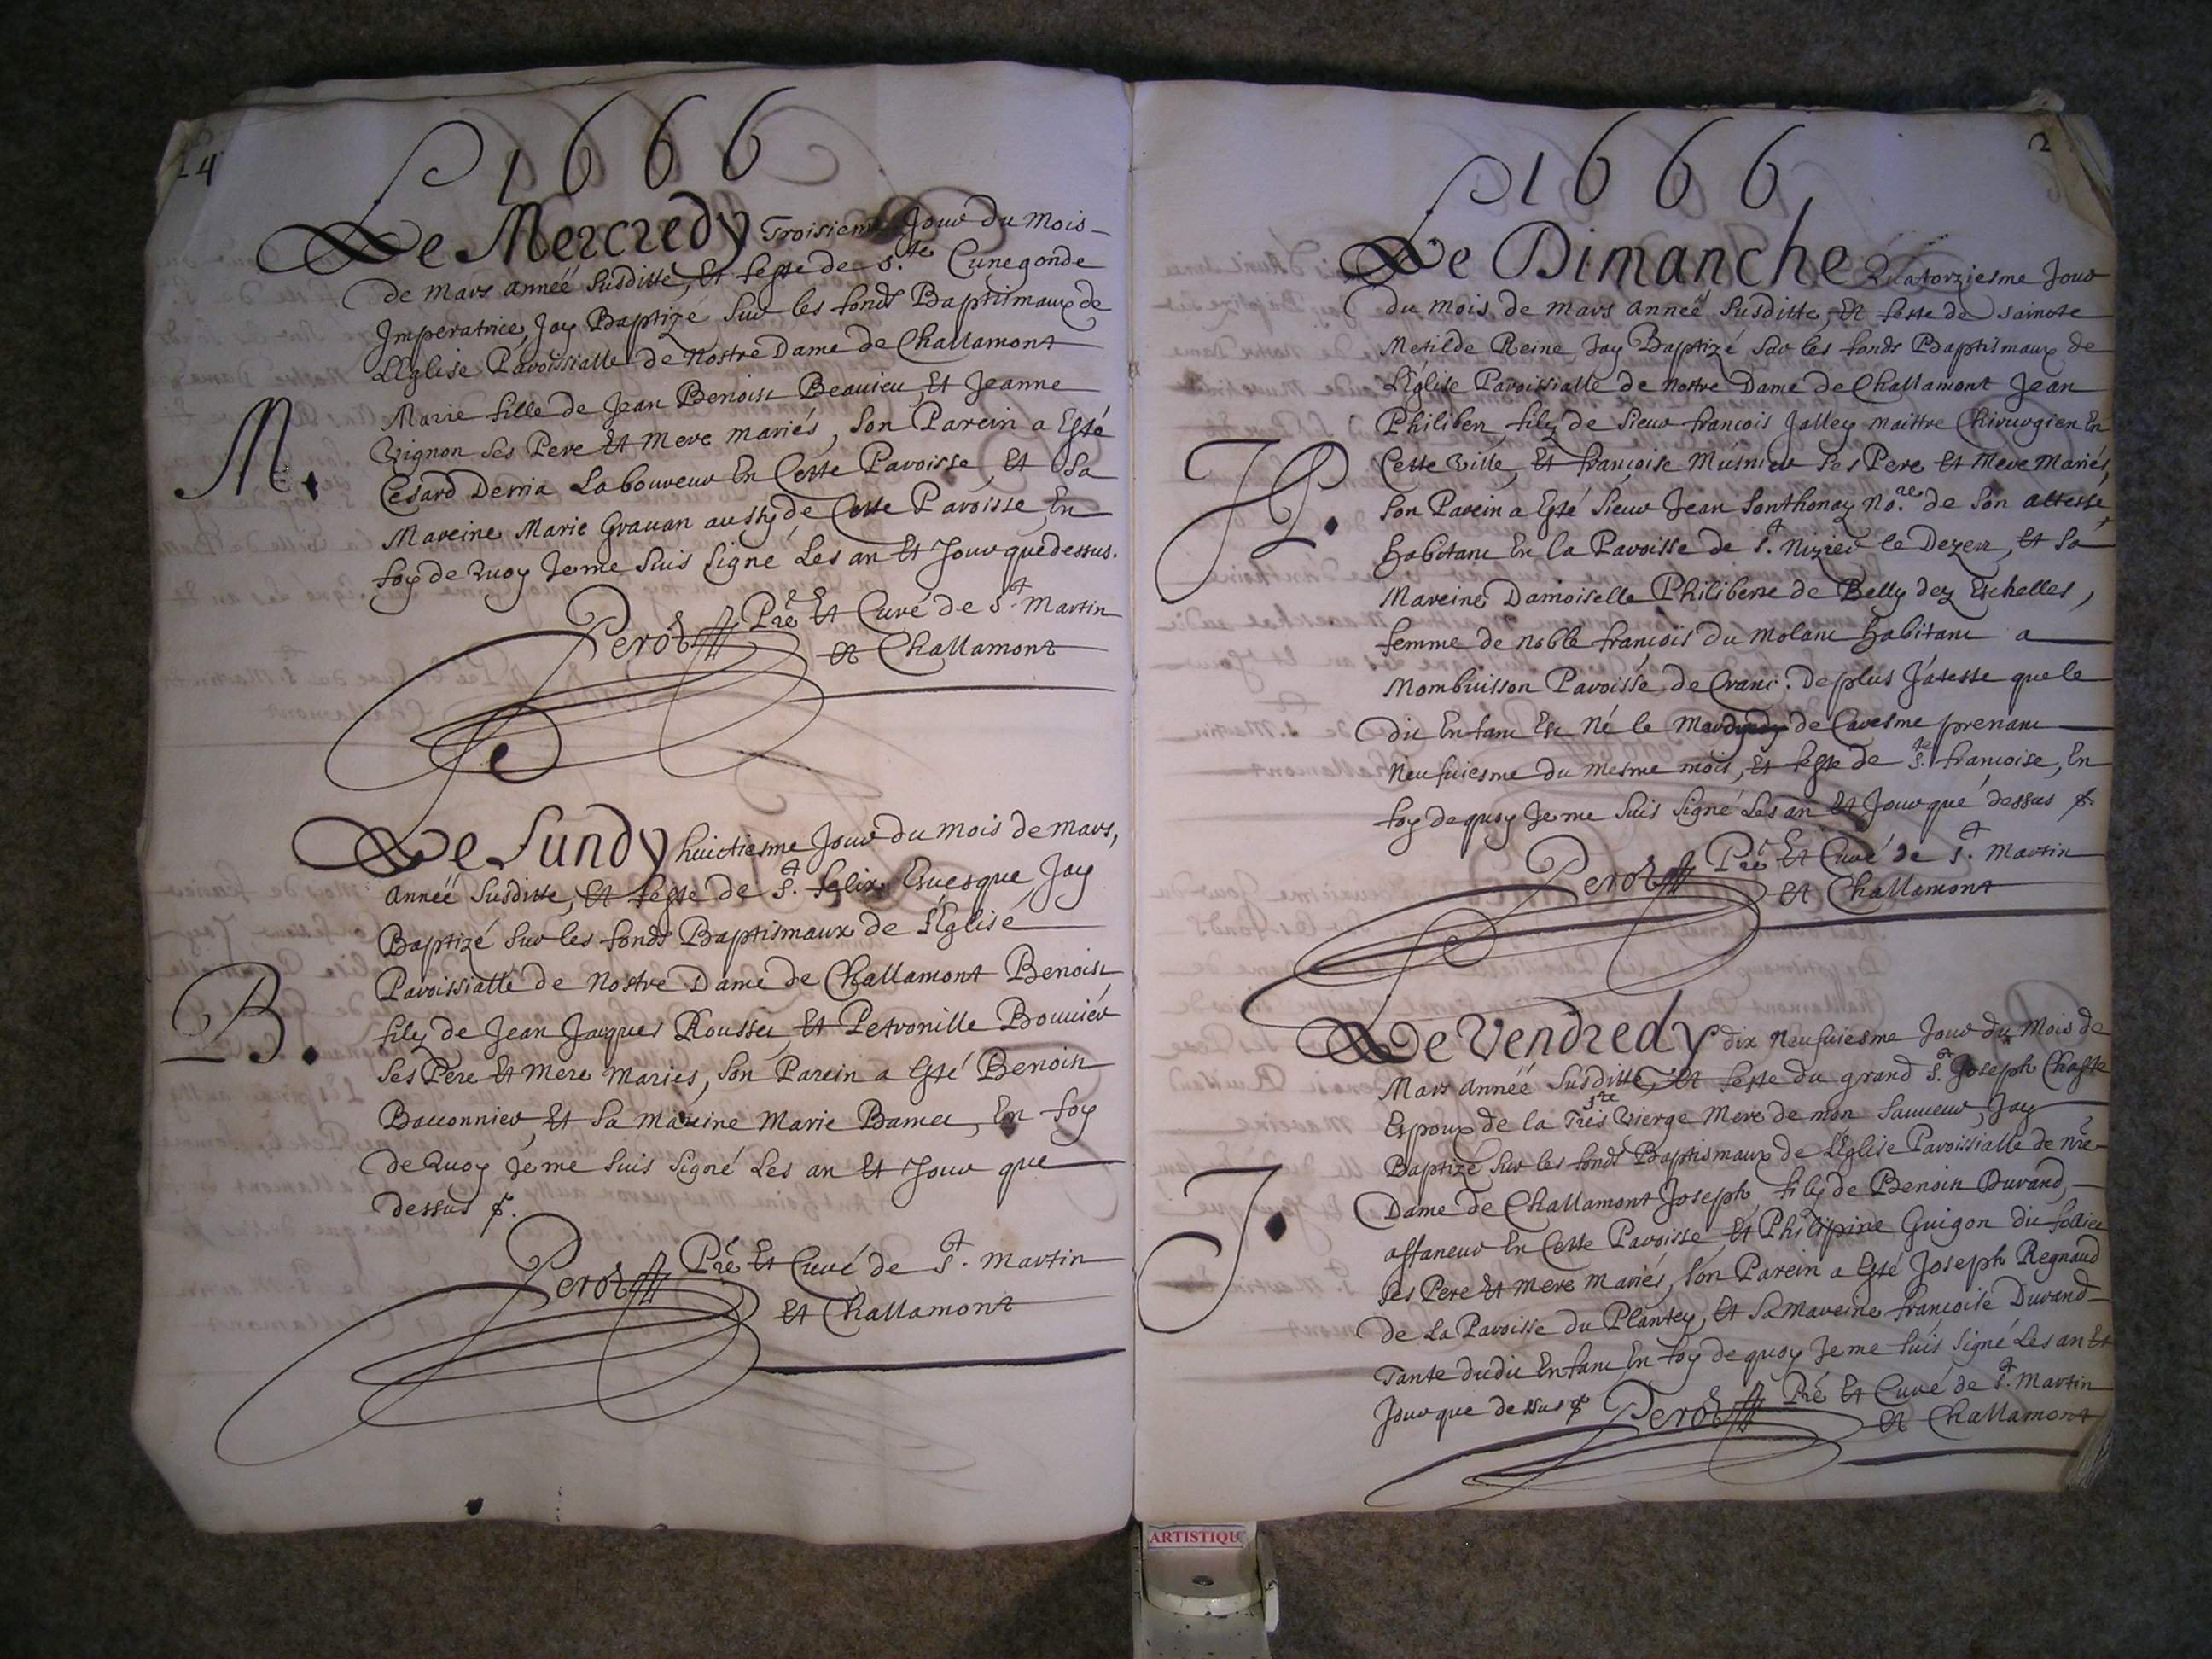 24
1666
Le Mercredy Troisieme Jour du Mois
de Mars Anneé Susditte, Et feste de S.te Cunegonde
Imperatrice, Jay Baptizé Sur les fonds Baptismaux de
LEglise Paroissialle de Nostre Dame de Challamont
Marie fille de Jean Benoist Beauieu, Et Jeanne
Vignon Ses Pere Et Mere mariés, Son Parein a Esté
Cesard Derria Laboureur En Cette Paroisse, Et Sa
Mareine Marie Grauan aussy de Cette Paroisse, En
foy de Quoy Je me Suis Signé Les an Et Jour que dessus.
M.
Perot Pre Et Curé de S.t Martin
Et Challamont
Le Lundy huictiesme Jour du Mois de Mars,
Anneé Susditte, Et feste de S.t felix Euesque Jay
Baptizé Sur les fonds Baptismaux de L'Eglise
Paroissialle de Nostre Dame de Challamont Benoist
filz de Jean Jacques Rousset, Et Petronille Bouuier
Ses Pere Et Mere Mariés, Son Parein a Esté Benoist
Baconnier, Et Sa Mareine Marie Bamet, En foy
de Quoy Je me Suis Signé Les an Et Jour que
dessus
B.
Perot Pre Et Curé de S.t Martin
Et Challamont
2
1666
Le Dimanche Quatorziesme Jour
du Mois de Mars Anneé Susditte, Et feste de Saincte
Metilde Reine Jay Baptizé Sur les fonds Baptismaux de
L'Eglise Paroissialle de Nostre Dame de Challamont Jean
Philibert filz de Sieur francois Jalley Maistre Chirurgien En
Cette Ville, Et francoise Musnier Ses Pere Et Mere Mariés,
Son Parein a Esté Sieur Jean Sonthonay No.re de Son altesse,
habitant En la Paroisse de S.t Nizier le Dezert, Et Sa
Mareine Damoiselle Philiberte de Belly dez Eschelles,
femme de Noble francois du Molant habitant a
Mombuisson Paroisse de Crans. De plus J'ateste que le
dit Enfant Est Né le de Caresme prenant
Neufuiesme du mesme mois, Et feste de S.te francoise, En
foy de quoy Je me Suis Signé Les an Et Jour que dessus
JP.
Perot Pre Et Curé de S.t Martin
Et Challamont
Le Vendredy dix Neufuiesme Jour du Mois de
Mars Anneé Susditte, Et feste du grand S.t Joseph Chaste
Espoux de la Tres S.te Vierge Mere de mon Sauueur, Jay
Baptizé Sur les fonds Baptismaux de L'Eglise Paroissialle de nre
Dame de Challamont Joseph, filz de Benoist Durand,
affaneur En Cette Paroisse, Et Philipine Guigon du
Ses Pere Et Mere Mariés, Son Parein a Esté Joseph Regnaud
de La Paroisse du Plantey, Et Sa Mareine francoise Durand
Tante dudit Enfant, En foy de quoy Je me Suis Signé Les an Et
Jour que dessus
J.
Perot Pre Et Curé de S.t Martin
Et Challamont
ARTISTIQU